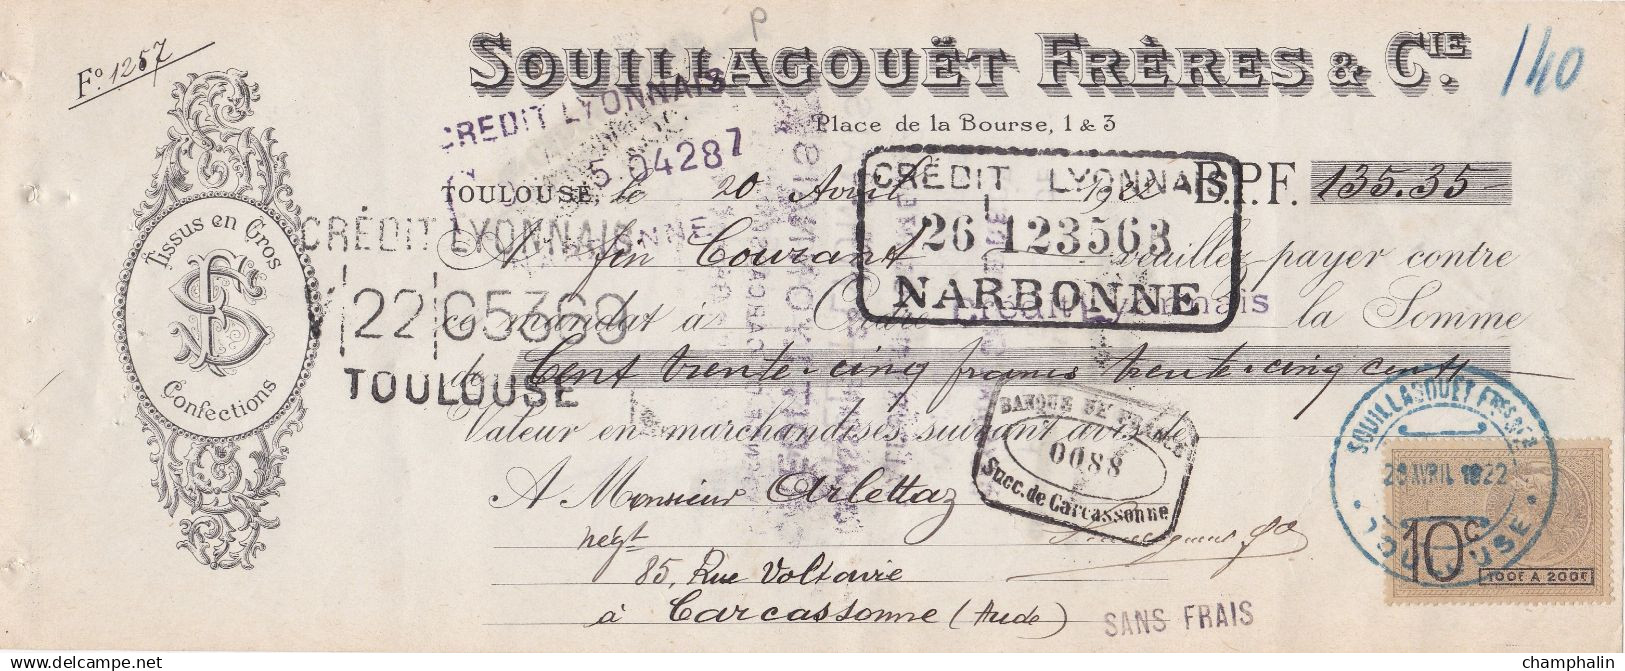 Fº 1257
SOUILLAGOUËT FRÈRES & CIE.
140
P
Place de la Bourse, 1 & 3
CREDIT LYONNAIS
5 04287
TOULOUSE, le 20 Avril 1922 B.P.F. 135.35
CRÉDIT LYONNAIS
26 123563
NARBONNE
Tissus en Gros
SF
Confections
CRÉDIT LYONNAIS
22 05368
TOULOUSE
A fin Courant veuillez payer contre
ce mandat à Ordre Crédit Lyonnais la Somme
de Cent trente cinq francs trente cinq cent
Valeur en marchandises suivant avis d
BANQUE DE FRANCE
0088
Succ. de Carcassonne
SOUILLAGOUET FRES & CIE
20 AVRIL 1922
TOULOUSE
10c
100F A 200F
A Monsieur Arlettaz
négt
85, Rue Voltaire
à Carcassonne (Aude)
SANS FRAIS
delcampe.net
champhalin